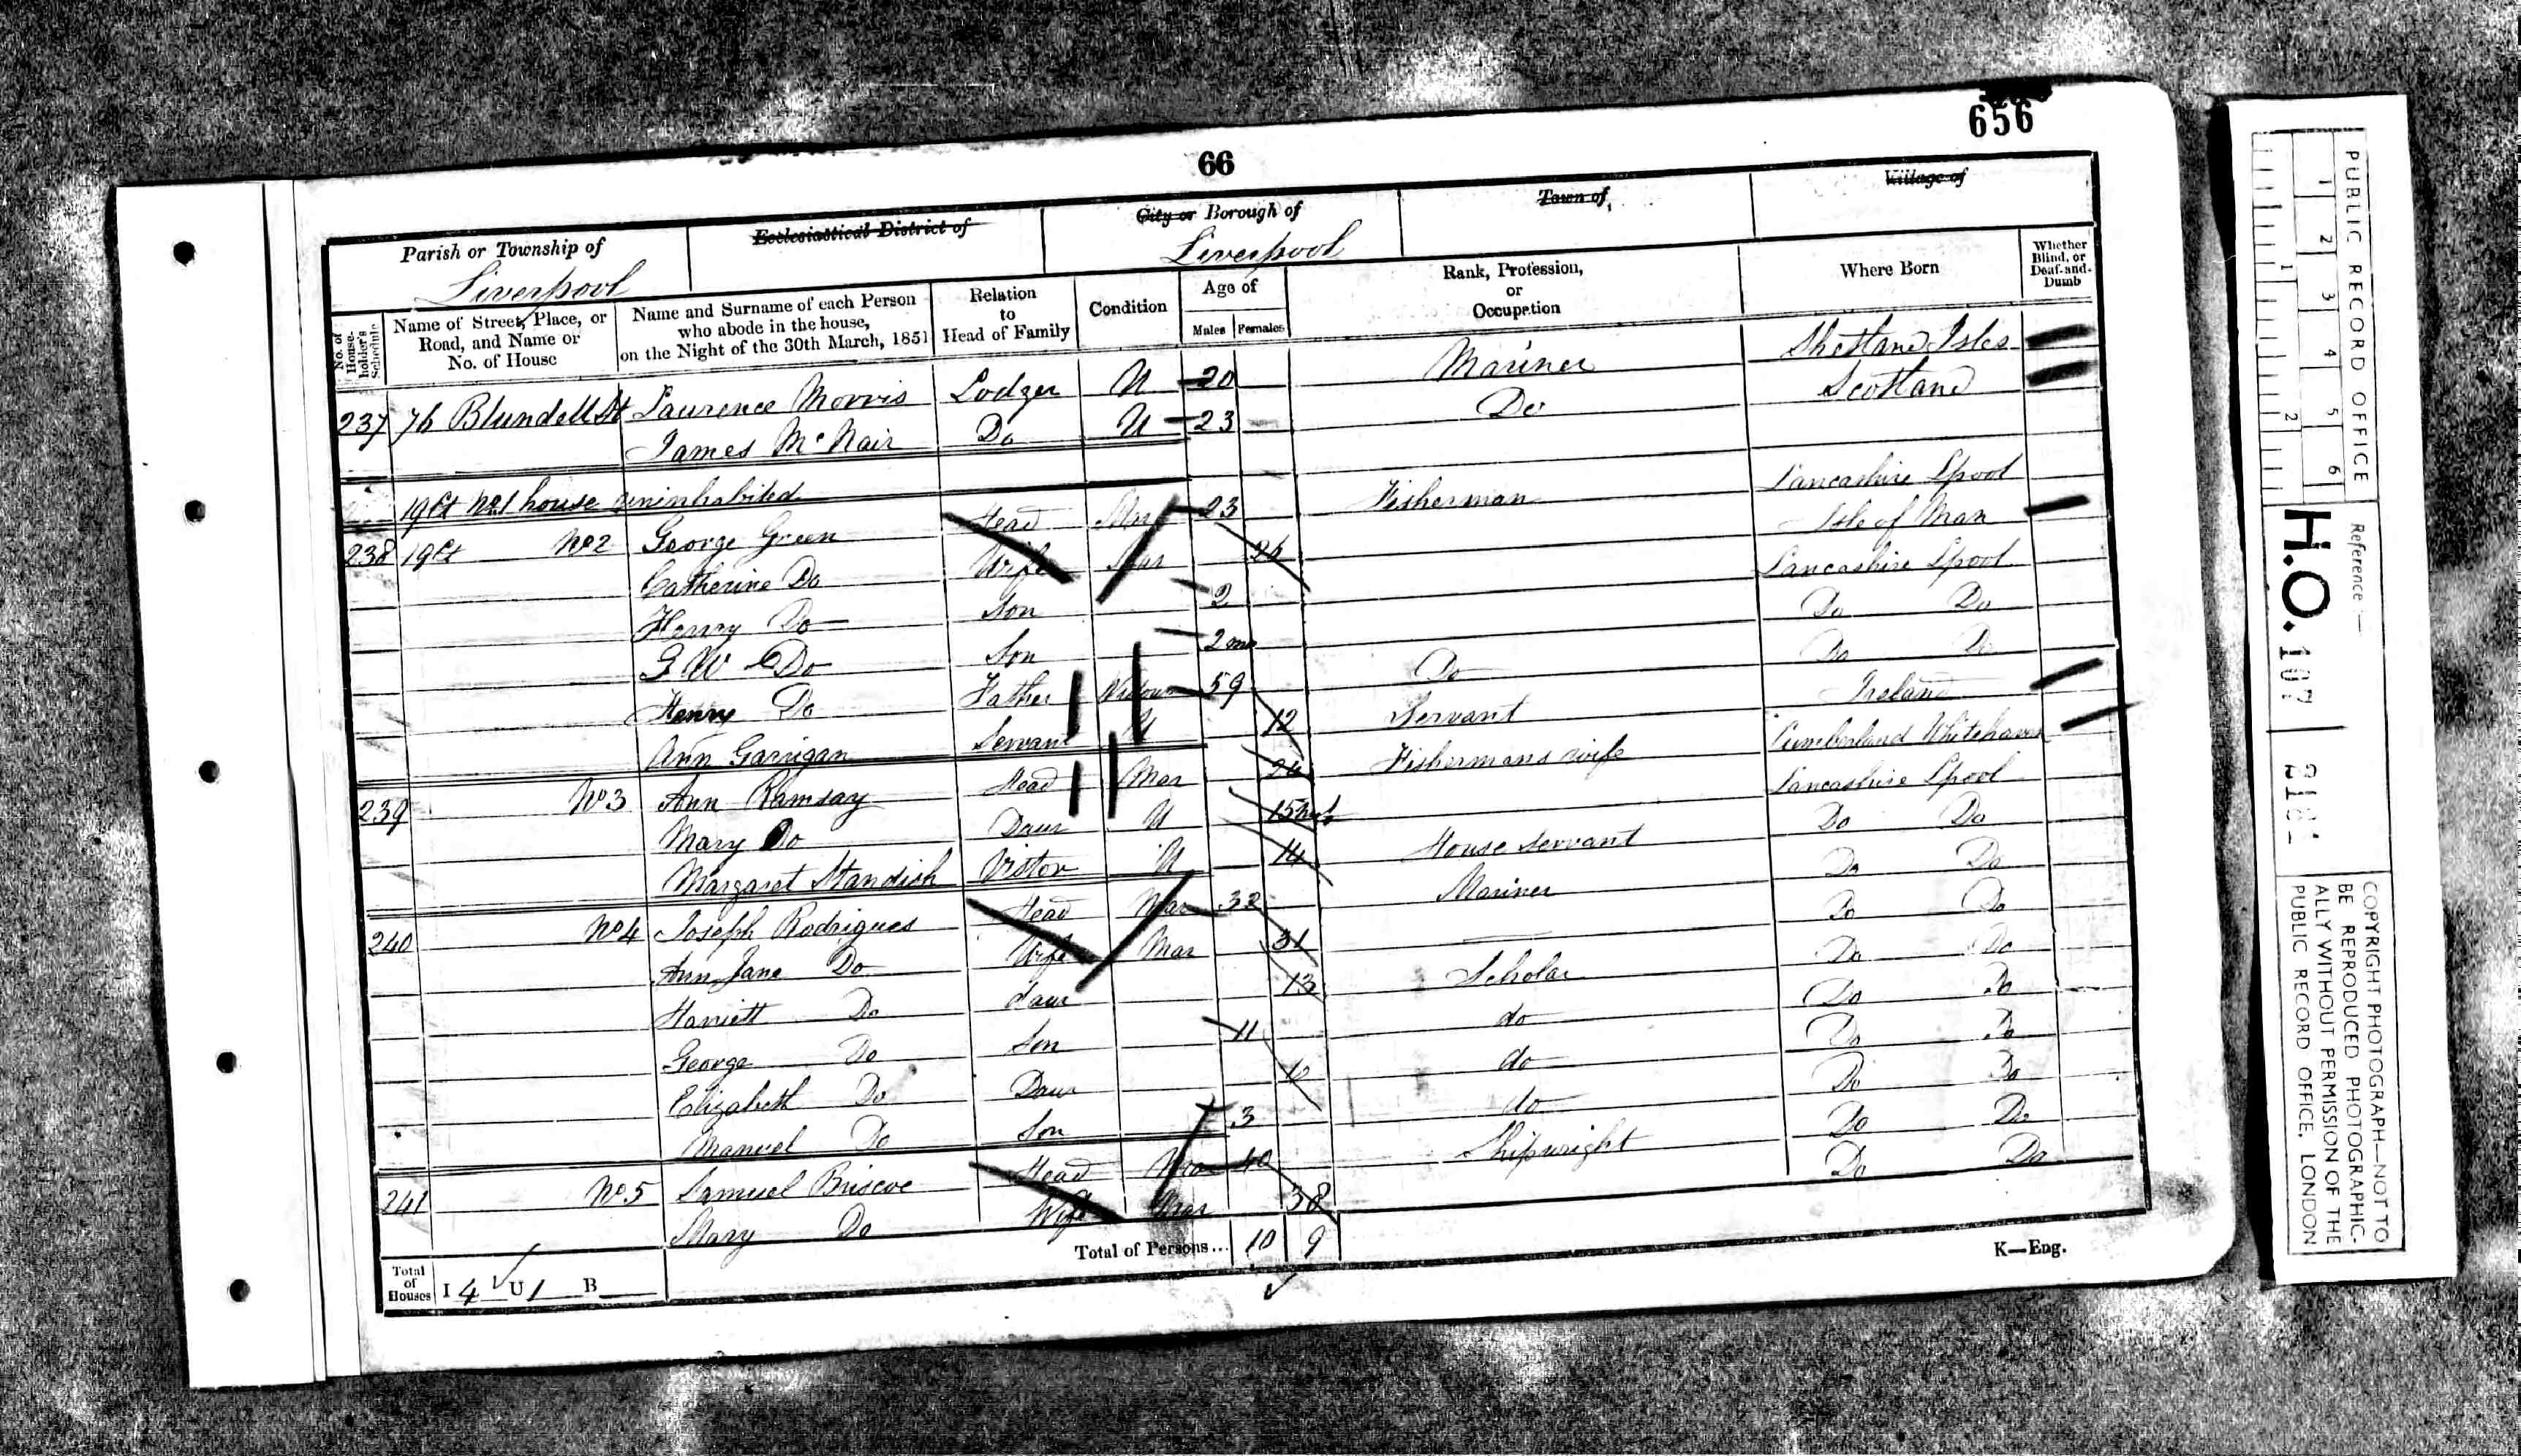 656
66
Parish or Township of Ecclesiastical District of City or Borough of Town of Village of
Liverpool Liverpool
No. of House-holder's Schedule Name of Street, Place, or Road, and Name or No. of House Name and Surname of each Person who abode in the house, on the Night of the 30th March, 1851 Relation to Head of Family Condition Age of Males Females Rank, Profession, or Occupation Where Born Whether Blind, or Deaf-and-Dumb
237 76 Blundell St Laurence Morris Lodger U 20 Mariner Shetland Isles
James McNair Do U 23 Do Scotland
19 Ct No 1 house uninhabited
238 19 Ct No 2 George Green Head Mar 23 Fisherman Lancashire Lpool
Catherine Do Wife Mar 26 Isle of Man
Henry Do Son 2 Lancashire Lpool
G W Do Son 2 mo Do Do
Henry Do Father Widower 59 Do Do Do
Ann Garrigan Servant U 12 Servant Ireland
239 No 3 Ann Ramsay Head Mar 26 Fishermans wife Cumberland Whitehaven
Mary Do Daur U 15 Lancashire Lpool
Margaret Standish Vistor U 14 House servant Do Do
240 No 4 Joseph Rodrigues Head Mar 32 Mariner Do Do
Ann Jane Do Wife Mar 31 Do Do
Harriett Do daur 13 Scholar Do Do
George Do Son 11 do Do Do
Elizabeth Do Daur do Do Do
Manuel Do Son 3 do Do Do
241 No 5 Samuel Briscoe Head Mar 40 Shipwright Do Do
Mary Do Wife Mar 38 Do Do
Total of Houses I 4 U 1 B Total of Persons... 10 9
K—Eng.
PUBLIC RECORD OFFICE
1 2 3 4 5 6
1 2
Reference :—
H.O. 107 2181
COPYRIGHT PHOTOGRAPH—NOT TO
BE REPRODUCED PHOTOGRAPHIC-
ALLY WITHOUT PERMISSION OF THE
PUBLIC RECORD OFFICE, LONDON